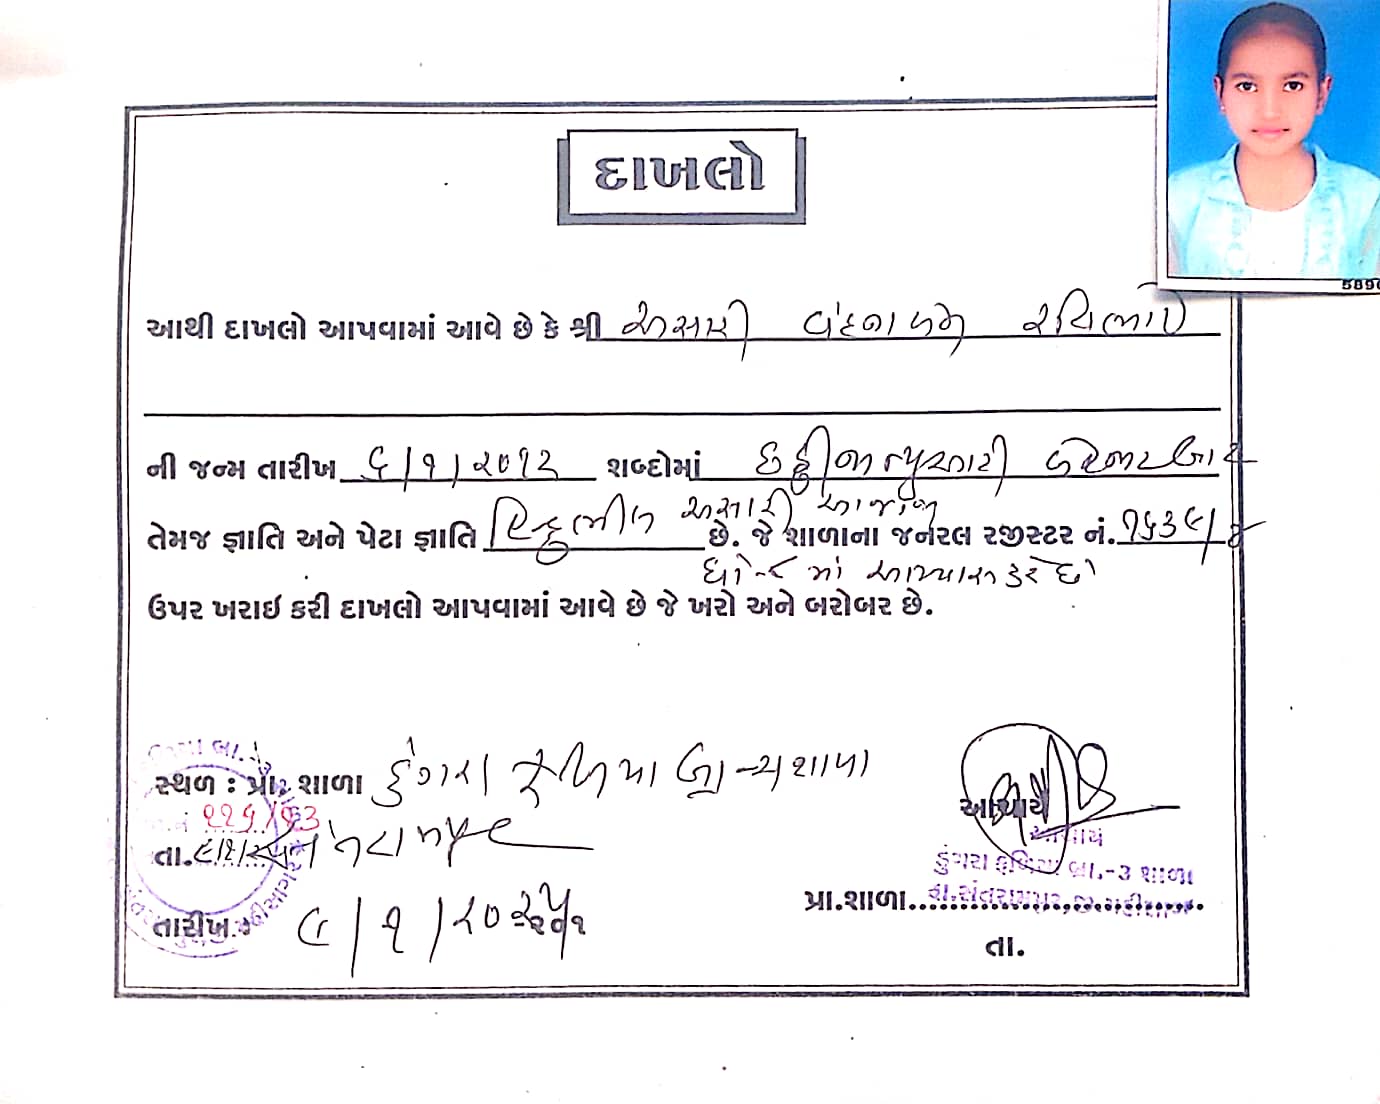 5890
દાખલો
આથી દાખલો આપવામાં આવે છે કે શ્રી અસારી વંદનાબેન રવિભાઇ
ની જન્મ તારીખ ૬/૧/૨૦૧૨ શબ્દોમાં છઠ્ઠી જાન્યુઆરી બેહજાર બાર
તેમજ જ્ઞાતિ અને પેટા જ્ઞાતિ હિન્દુ ભીલ અસારી છે. જે શાળાના જનરલ રજીસ્ટર નં.
ધો-૮ માં અભ્યાસ કરે છે
ઉપર ખરાઇ કરી દાખલો આપવામાં આવે છે જે ખરો અને બરોબર છે.
સ્થળ : પ્રા. શાળા ડુંગરા ફળિયા બ્રાન્ચશાળા
તા.
તારીખ ૯/૧/૨૦૨૫
આચાર્ય
આચાર્ય
ડુંગરા ફળિયા બ્રા.-૩ શાળા
પ્રા.શાળા
તા.સંતરામપુર, જી.મહીસાગર
તા.